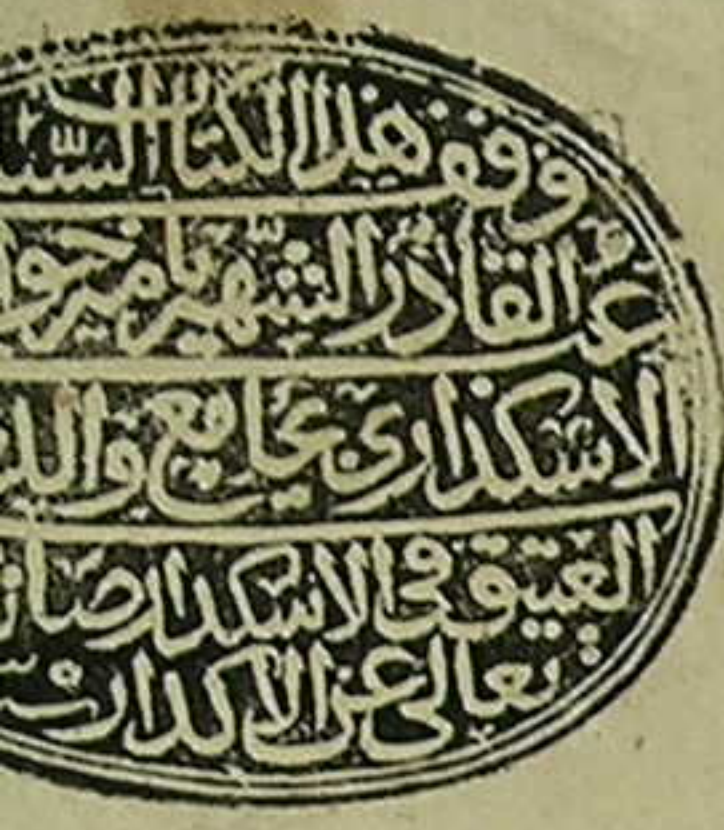 وقف هذا الكتاب السيد
عبد القادر الشهير بامير خوا
الاسكداري بجامع والد
العتيق في الاسكدار صا
تعالى عن الاكدار